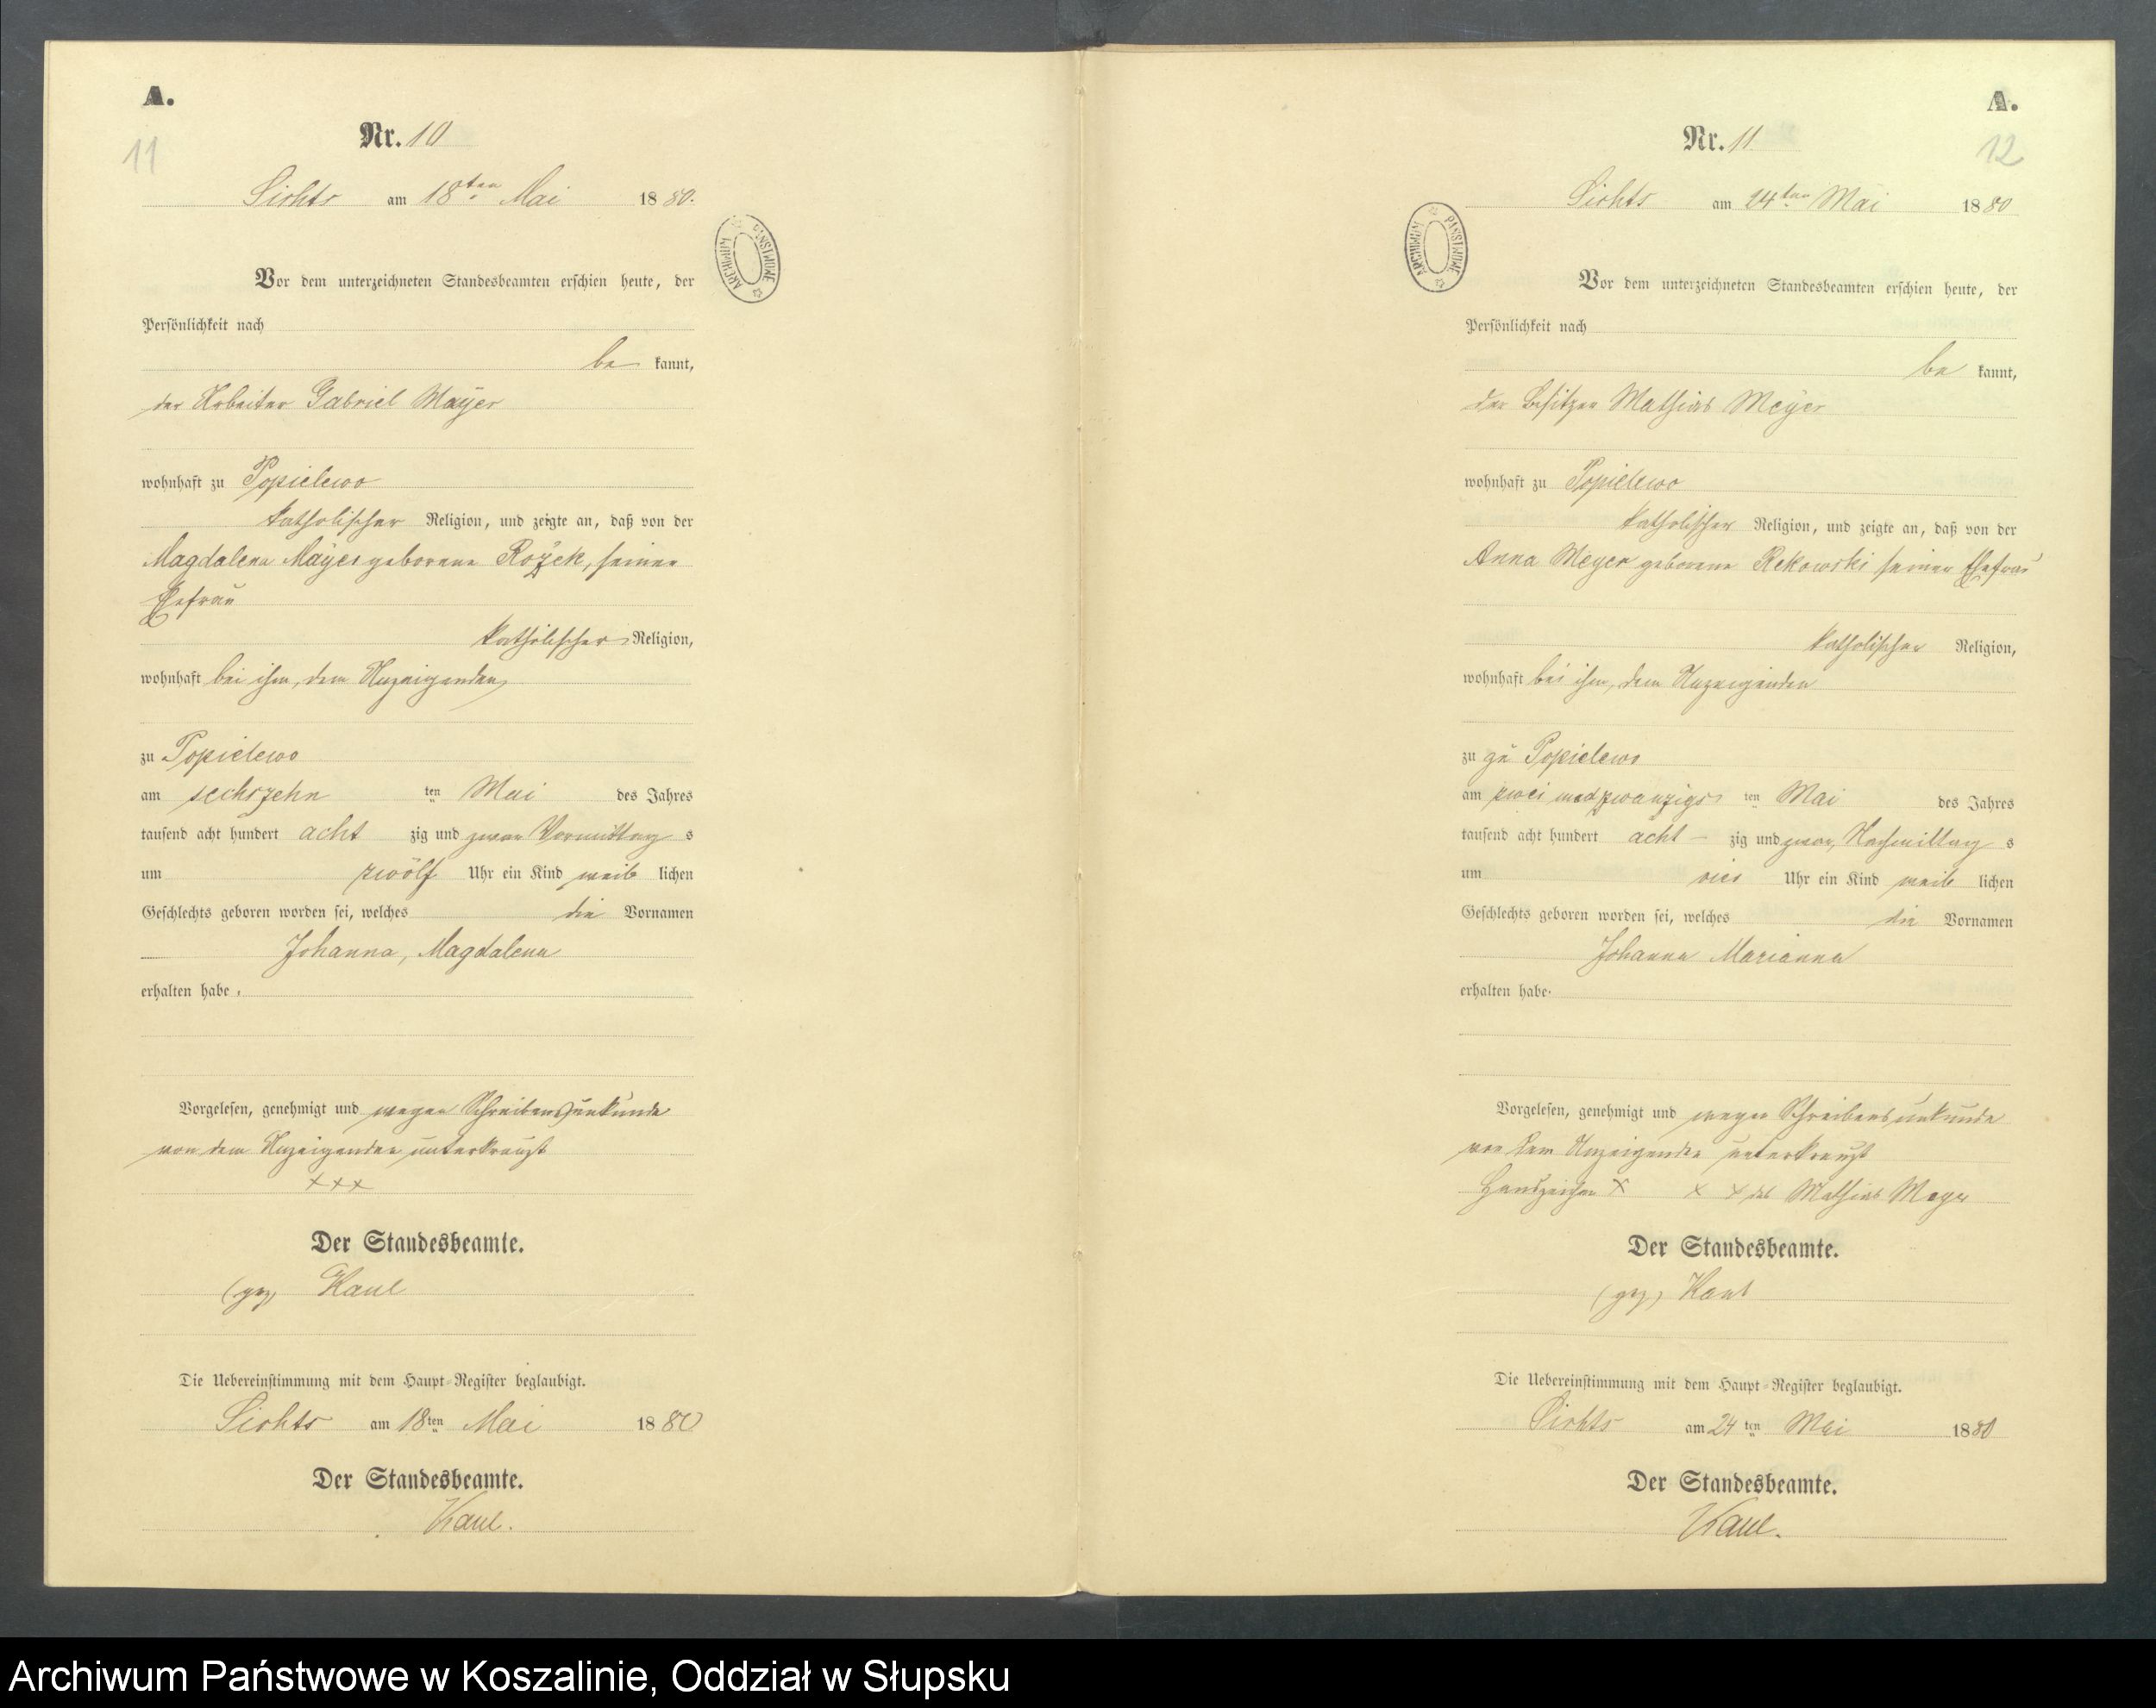 A.
11
Nr. 10
Sichts am 18ten Mai 1880.
ARCHIWUM PAŃSTWOWE
Vor dem unterzeichneten Standesbeamten erschien heute, der
Persönlichkeit nach
be kannt,
der Arbeiter Gabriel Mayer
wohnhaft zu Popielewo
katholischer Religion, und zeigte an, daß von der
Magdalena Mayer geborene Rożek, seiner
Ehefrau
katholischer Religion,
wohnhaft bei ihm, dem Anzeigenden
zu Popielewo
am sechszehn ten Mai des Jahres
tausend acht hundert acht zig und zwar Vormittag s
um zwölf Uhr ein Kind weib lichen
Geschlechts geboren worden sei, welches die Vornamen
Johanna, Magdalena
erhalten habe.
Vorgelesen, genehmigt und wegen Schreibensunkunde
von dem Anzeigenden unterkreuzt
xxx
Der Standesbeamte.
(gez) Kaul
Die Uebereinstimmung mit dem Haupt-Register beglaubigt.
Sichts am 18ten Mai 1880
Der Standesbeamte.
Kaul.
A.
12
Nr. 11
Sichts am 24ten Mai 1880
ARCHIWUM PAŃSTWOWE
Vor dem unterzeichneten Standesbeamten erschien heute, der
Persönlichkeit nach
be kannt,
der Besitzer Mathias Meyer
wohnhaft zu Popielewo
katholischer Religion, und zeigte an, daß von der
Anna Meyer geborene Rekowski seiner Ehefrau
katholischer Religion,
wohnhaft bei ihm, dem Anzeigenden
zu zu Popielewo
am zwei und zwanzigs ten Mai des Jahres
tausend acht hundert acht – zig und zwar, Nachmittag s
um vier Uhr ein Kind weib lichen
Geschlechts geboren worden sei, welches die Vornamen
Johanna Marianna
erhalten habe.
Vorgelesen, genehmigt und wegen Schreibensunkunde
von dem Anzeigenden unterkreuzt
Handzeichen x x x des Mathias Meyer
Der Standesbeamte.
(gez) Kaul
Die Uebereinstimmung mit dem Haupt-Register beglaubigt.
Sichts am 24ten Mai 1880
Der Standesbeamte.
Kaul.
Archiwum Państwowe w Koszalinie, Oddział w Słupsku